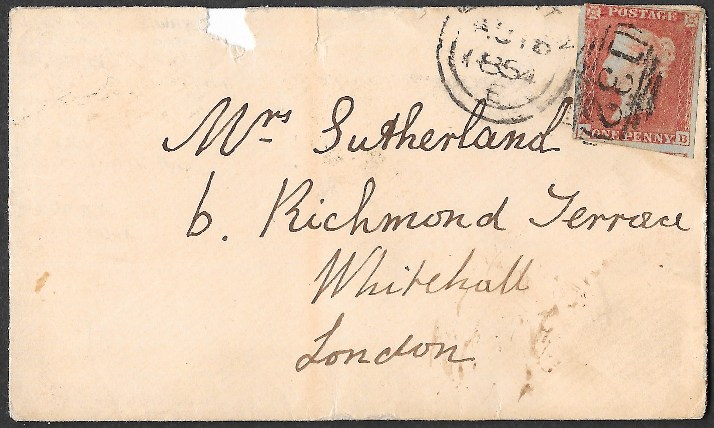 POSTAGE
ONE PENNY
AU 16
1854
E
Mrs Sutherland
6. Richmond Terrace
Whitehall
London